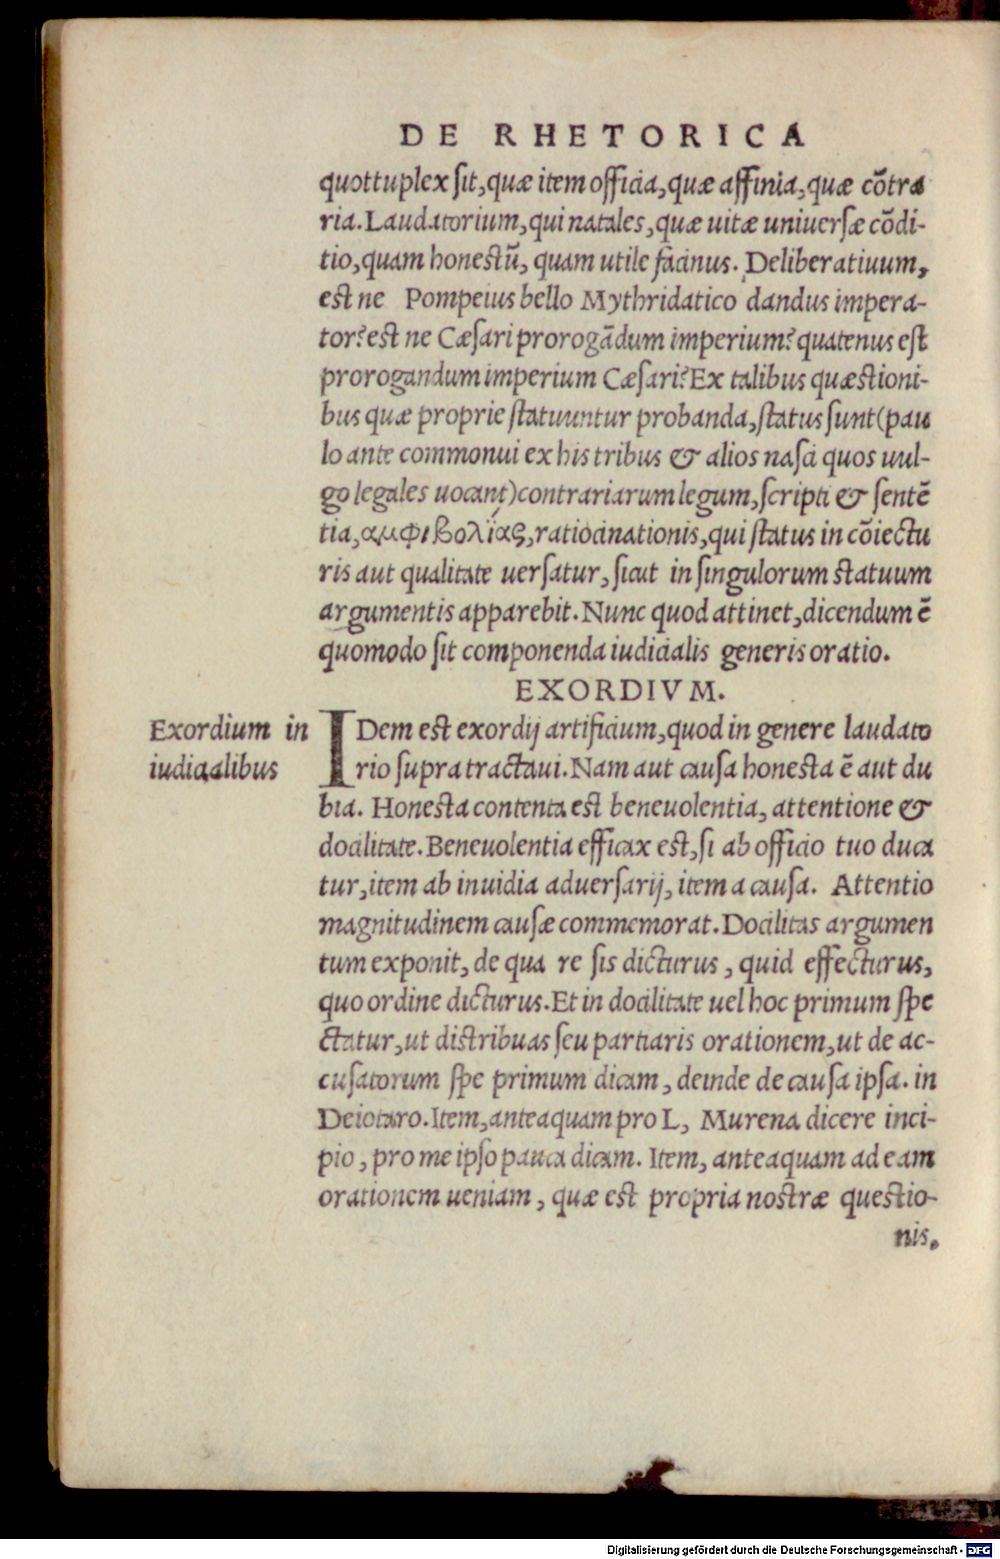 DE RHETORICA
quottuplex ſit, quæ item officia, quæ affinia, quæ cõtra
ria. Laudatorium, qui natales, quæ uitæ uniuerſæ cõdi-
tio, quam honestũ, quam utile facinus. Deliberatiuum,
est ne Pompeius bello Mythridatico dandus impera-
tor? est ne Cæſari prorogãdum imperium? quatenus eſt
prorogandum imperium Cæſari? Ex talibus quæstioni-
bus quæ proprie ſtatuuntur probanda, ſtatus ſunt (pau
lo ante commonui ex his tribus & alios naſci quos uul-
go legales uocant) contrariarum legum, ſcripti & ſentẽ
tia, αμφιβολίας, ratiocinationis, qui ſtatus in cõiectu
ris aut qualitate uerſatur, ſicut in ſingulorum statuum
argumentis apparebit. Nunc quod attinet, dicendum ẽ
quomodo ſit componenda iudicialis generis oratio.
EXORDIVM.
Exordium in
iudicialibus
IDem est exordij artificium, quod in genere laudato
rio ſupra tractaui. Nam aut cauſa honesta ẽ aut du
bia. Honesta contenta est beneuolentia, attentione &
docilitate. Beneuolentia efficax est, ſi ab officio tuo duca
tur, item ab inuidia aduerſarij, item a cauſa. Attentio
magnitudinem cauſæ commemorat. Docilitas argumen
tum exponit, de qua re ſis dicturus, quid effecturus,
quo ordine dicturus. Et in docilitate uel hoc primum ſpe
ctatur, ut distribuas ſeu partiaris orationem, ut de ac-
cuſatorum ſpe primum dicam, deinde de cauſa ipſa. in
Deiotaro. Item, anteaquam pro L, Murena dicere inci-
pio, pro me ipſo pauca dicam. Item, anteaquam ad eam
orationem ueniam, quæ est propria nostræ questio-
nis.
Digitalisierung gefördert durch die Deutsche Forschungsgemeinschaft - DFG